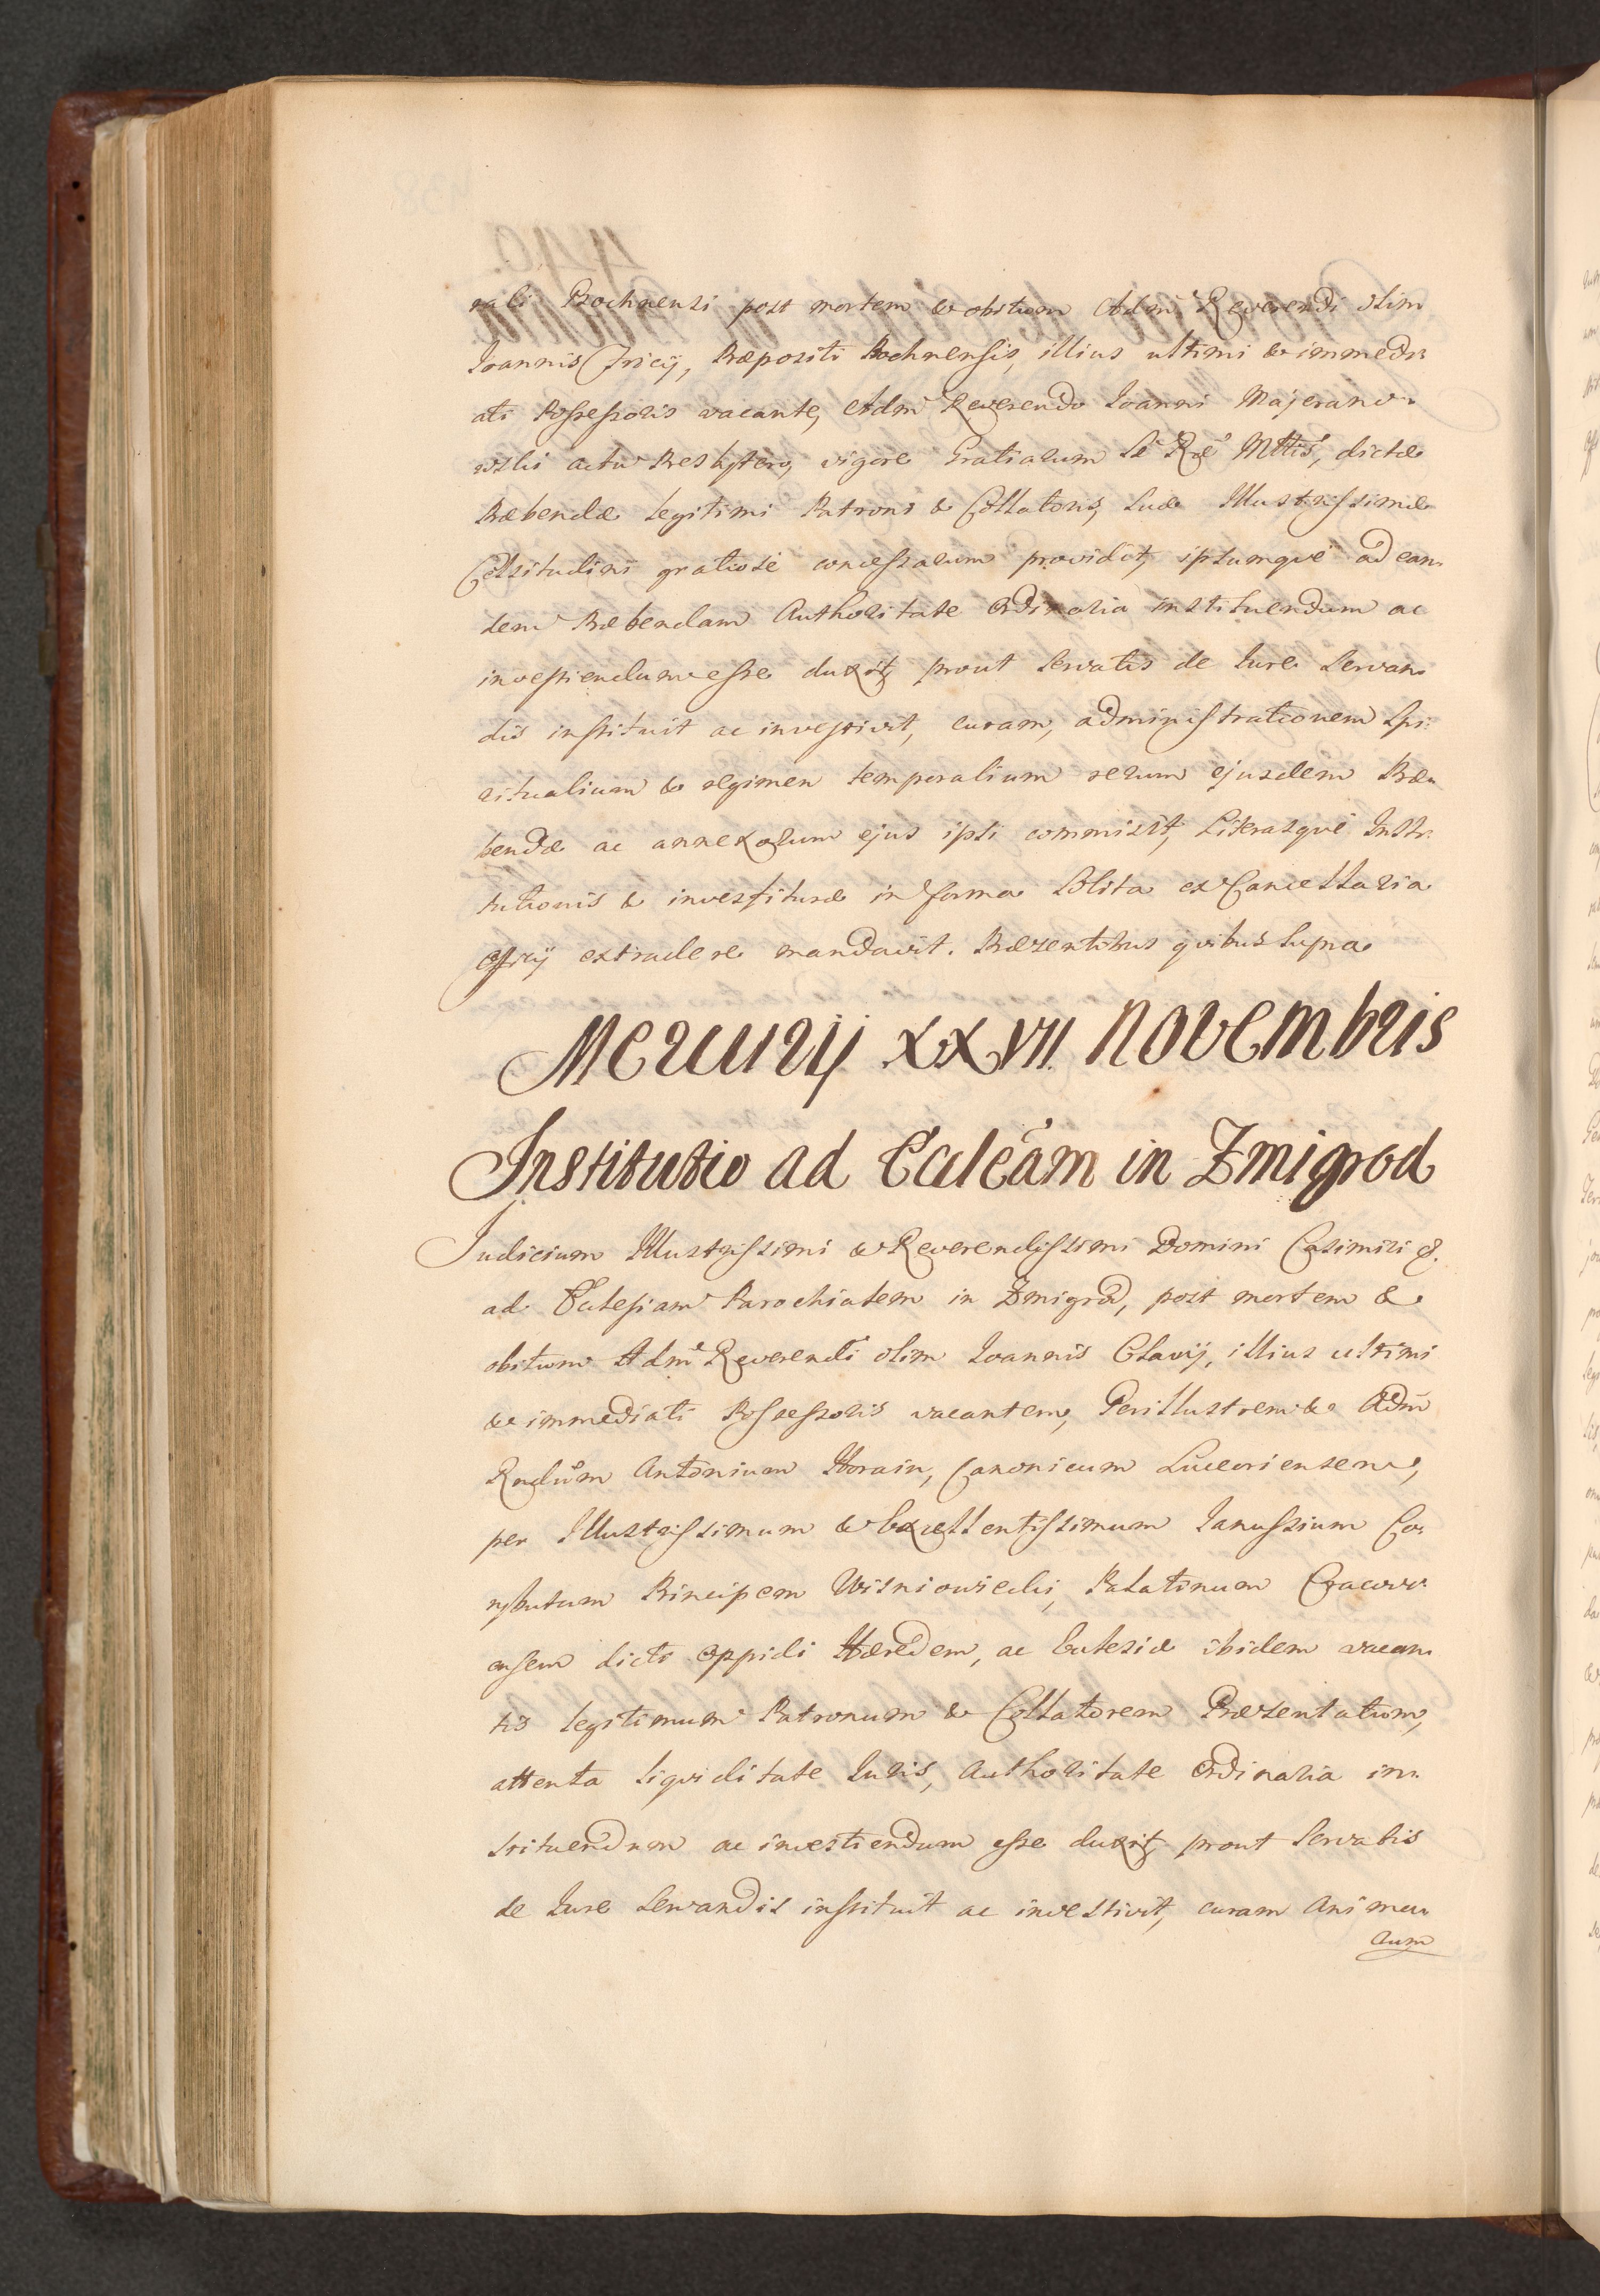 rali Bochnensi post mortem & obitum Adm Reverendi olim
Ioannis Fricij, Præpositi Bochnensis, illius ultimi & immedi-
ati Possessoris vacante, Adm Reverendo Ioanni Majerano-
wski actu Presbytero, vigore Gratiarum Sæ Ræ Mttis, dictæ
Præbendæ legitimi Patroni & Collatoris, Suæ Illustrissimæ
Celsitudini gratiose concessarum providit, ipsumque ad ean-
dem Præbendam Authoritate Ordinaria instituendum ac
investiendum esse duxit, prout servatis de Iure servan-
dis instituit ac investivit, curam, administrationem Spi-
ritualium & regimen temporalium rerum ejusdem Præ-
bendæ ac annexorum ejus ipsi commisit, Literasque Insti-
tutionis & investituræ in forma solita ex Cancellaria
Officij extradere mandavit. Præsentibus quibus supra
Mercurij XXVII Novembris
Institutio ad Ecclēam in Zmigrod
Iudicium Illustrissimi & Reverendissimi Domini Casimiri &.
ad Ecclesiam Parochialem in Zmigrod, post mortem &
obitum Adm Reverendi olim Ioannis Clavij, illius ultimi
& immediati Possessoris vacantem, Perillustrem & Adm
Rndum Antonium Horain, Canonicum Luceoriensem,
per Illustrissimum & Excellentissimum Ianussium Co-
rybutum Principem Wisniowiecki, Palatinum Cracovi-
ensem dicti Oppidi Hæredem, ac Ecclesiæ ibidem vacan-
tis legitimum Patronum & Collatorem Præsentatum,
attenta liquiditate Iuris, Authoritate Ordinaria in-
stituendum ac investiendum esse duxit, prout servatis
de Iure servandis instituit ac investivit, curam Anima-
rum